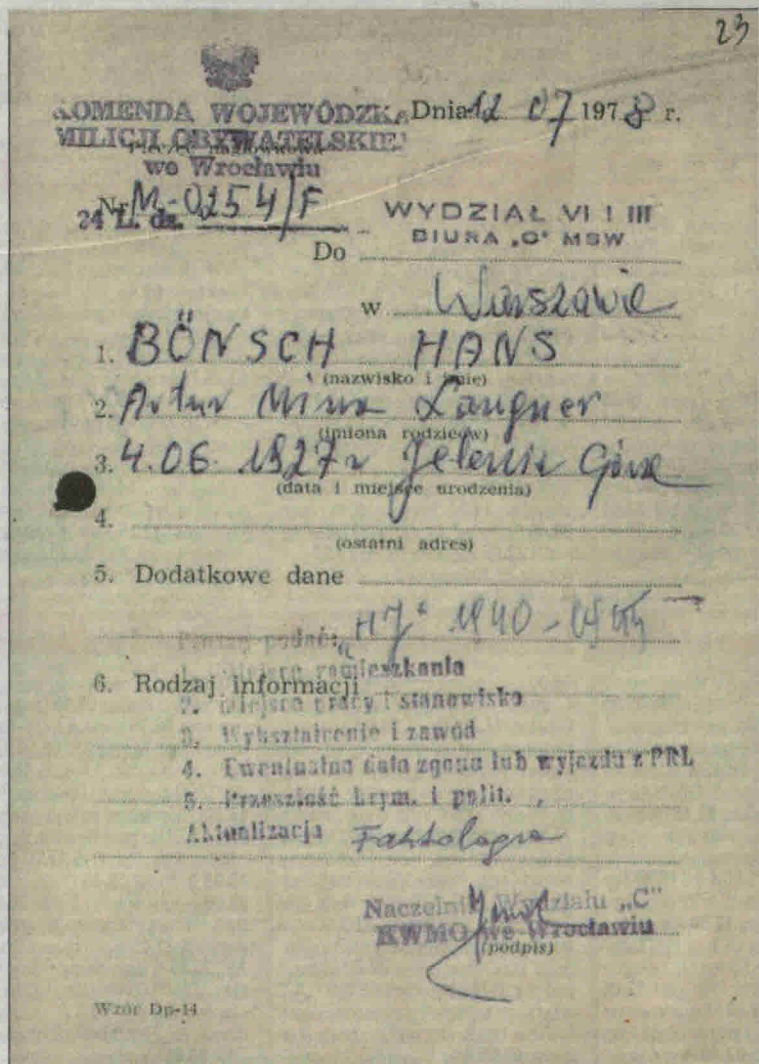 23
KOMENDA WOJEWÓDZKA Dnia 12 07 1978 r.
MILICJI OBYWATELSKIEJ
we Wrocławiu
Nr M-0254/F
24 L. dz.
WYDZIAŁ VI I III
BIURA „C" MSW
Do
w Warszawie
1. BÖNSCH HANS
(nazwisko i imię)
2. Artur Langner
(imiona rodziców)
3. 4.06.1927 r Jelenia Góra
(data i miejsce urodzenia)
4.
(ostatni adres)
5. Dodatkowe dane
Proszę podać: „HJ" 1940 -
1. Miejsce zamieszkania
6. Rodzaj informacji
2. Miejsce pracy i stanowisko
3. Wykształcenie i zawód
4. Ewentualna data zgonu lub wyjazdu z PRL
5. Przeszłość krym. i polit.
Aktualizacja
Naczelnik Wydziału „C"
KWMO we Wrocławiu
(podpis)
Wzór Dp-14